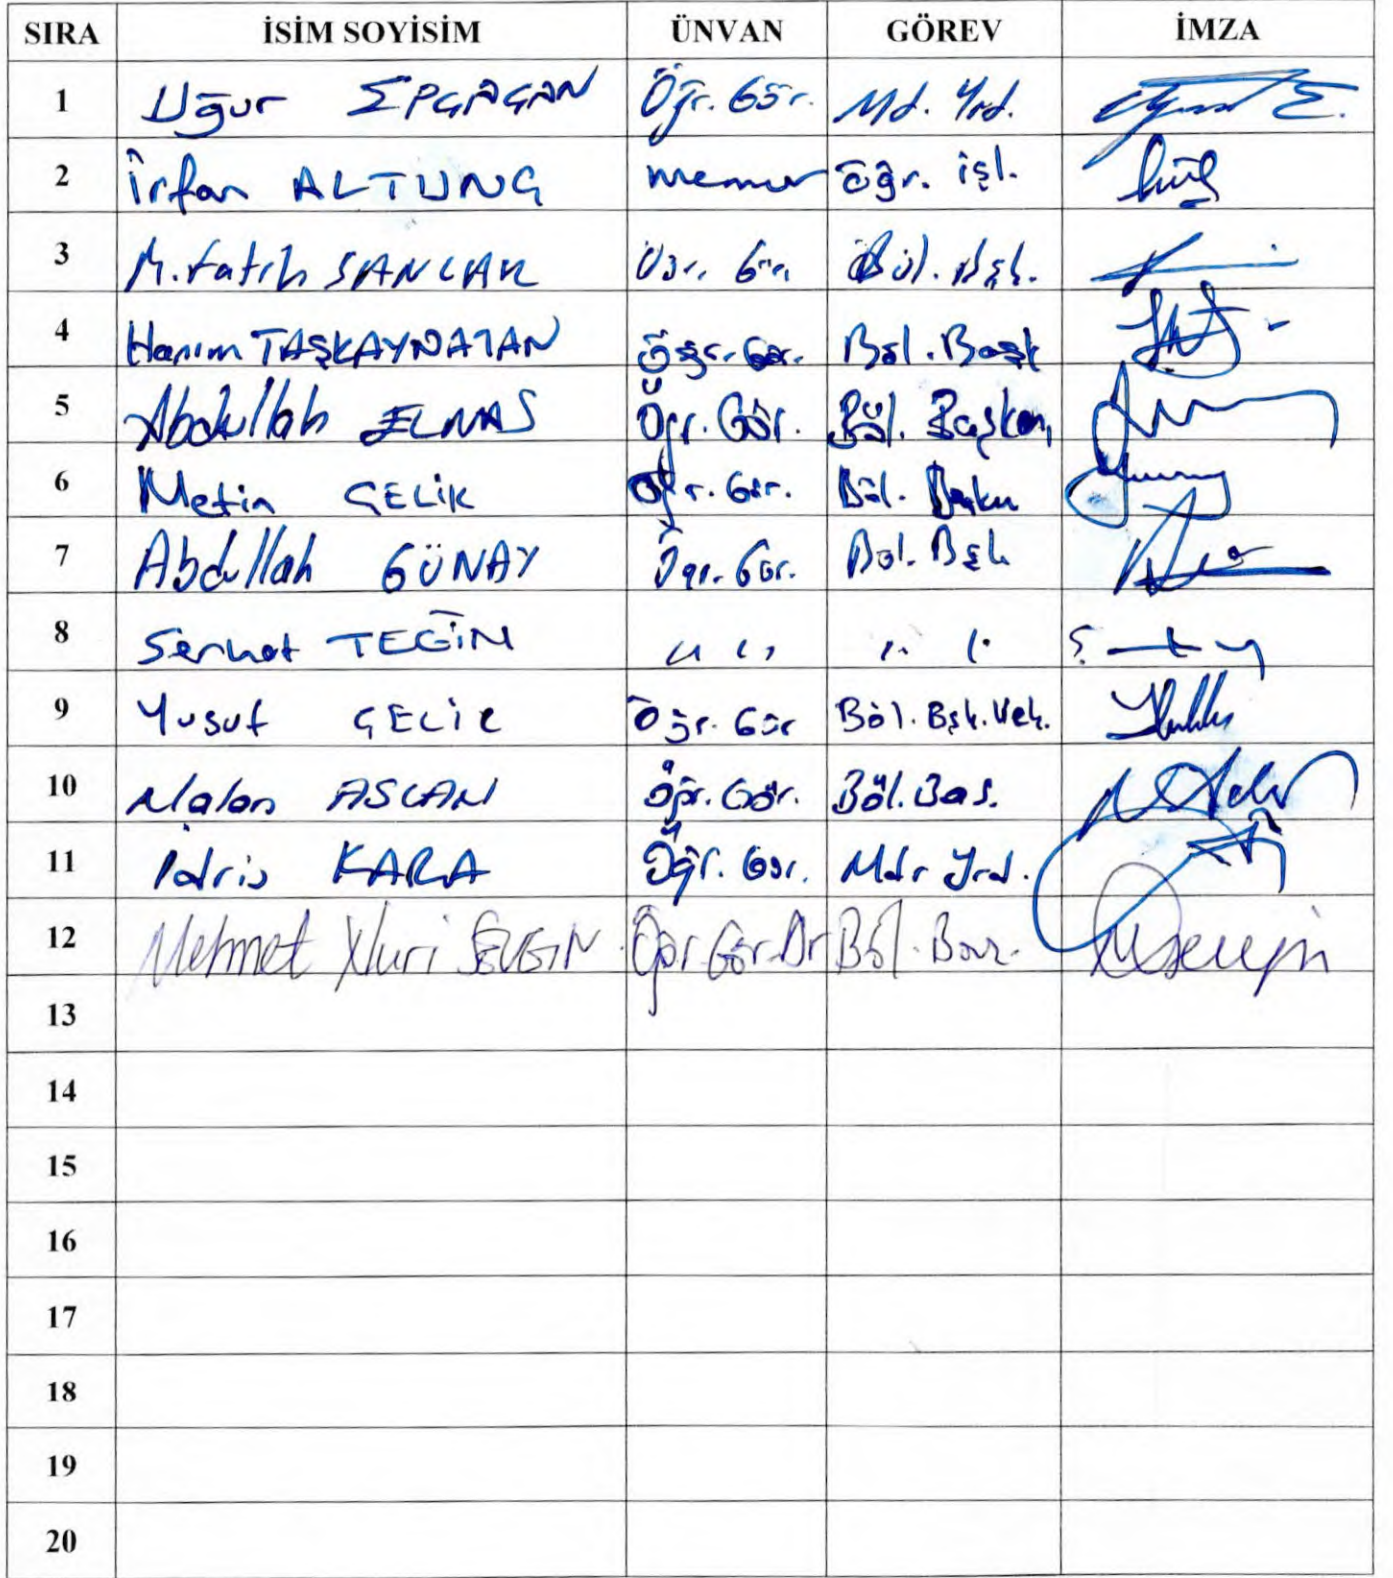 SIRA İSİM SOYİSİM ÜNVAN GÖREV İMZA
1 Uğur Öğr. Gör. Md. Yrd.
2 İrfan ALTUNÇ memur Öğr. işl.
3 M. Fatih SANCAK Öğr. Gör. Böl. Bşk.
4 Hanım TAŞKAYNATAN Öğr. Gör. Böl. Başk
5 Abdullah ELMAS Öğr. Gör. Böl. Başkanı
6 Metin ÇELİK Öğr. Gör. Böl.
7 Abdullah GÜNAY Öğr. Gör. Böl. Bşk
8 Serhat TEĞİN " " " "
9 Yusuf ÇELİK Öğr. Gör Böl. Bşk. Vek.
10 Nalan ASLAN Öğr. Gör. Böl. Baş.
11 İdris KARA Öğr. Gör. Mdr Yrd.
12 Mehmet Nuri SEVGİN Öğr. Gör. Dr Böl.
13
14
15
16
17
18
19
20